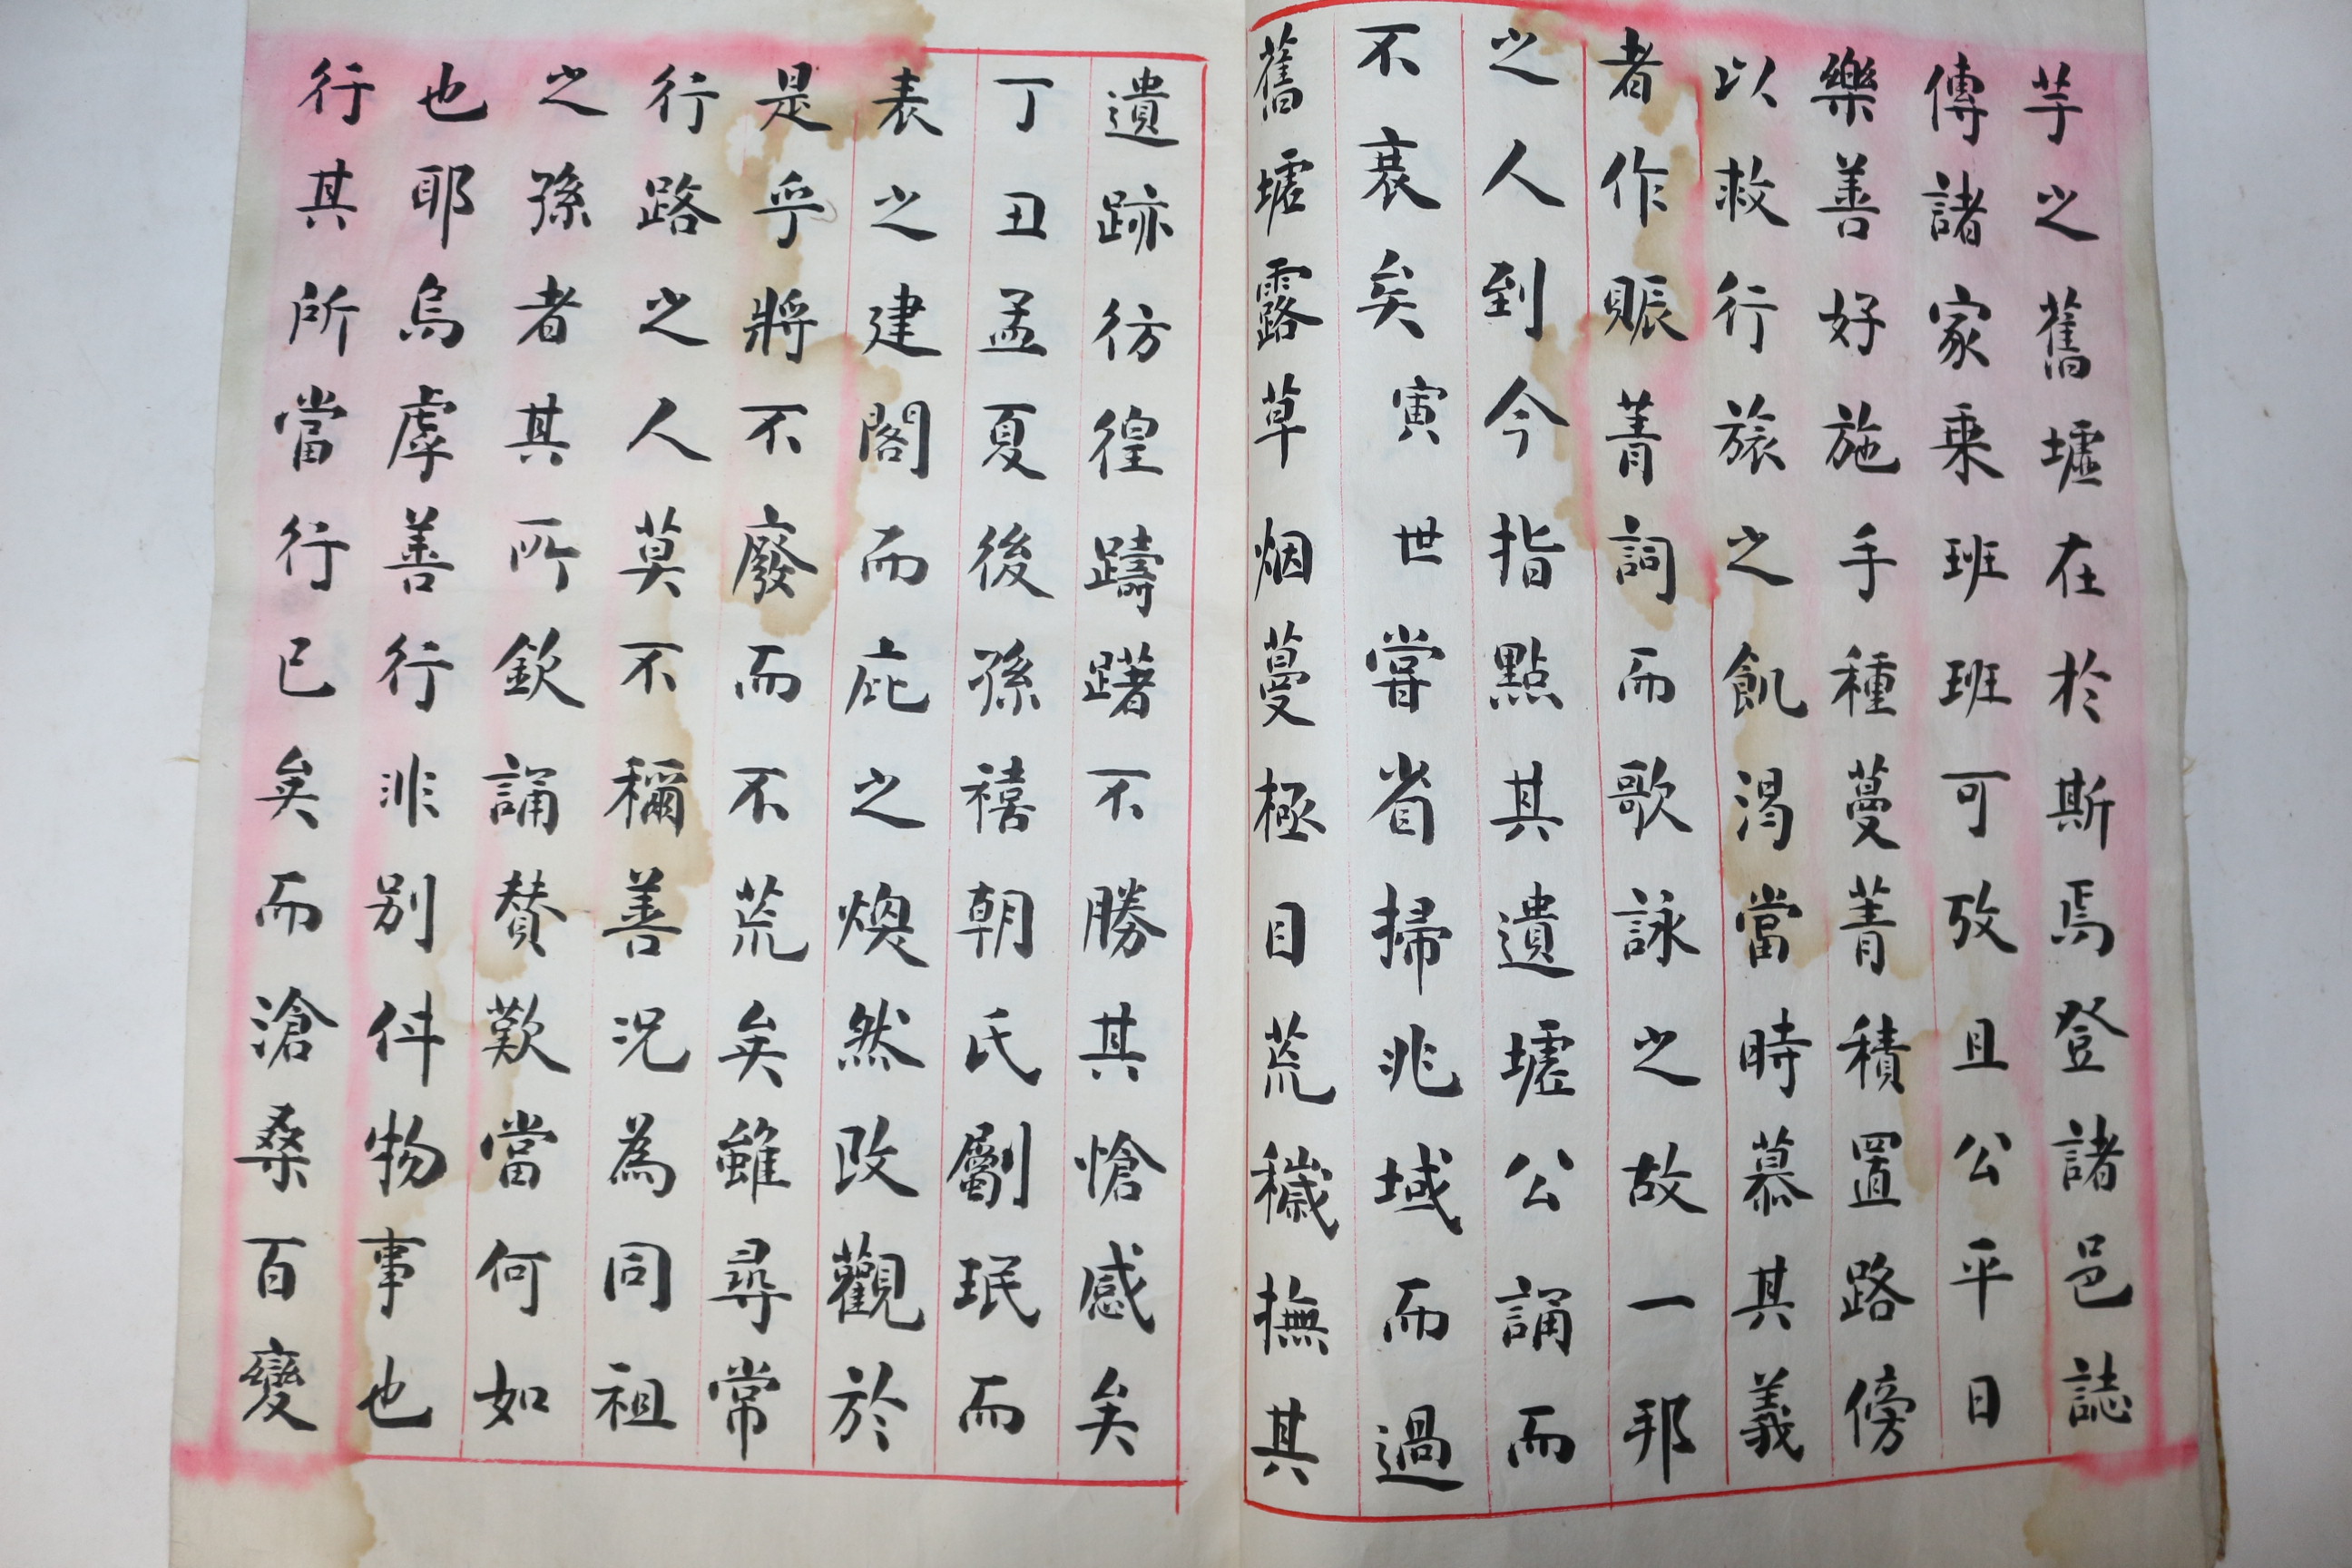 芋之舊墟在於斯焉登諸邑誌
傳諸家乘班班可攷且公平日
樂善好施手種蔓菁積置路傍
以救行旅之飢渴當時慕其義
者作賑菁詞而歌詠之故一邦
之人到今指點其遺墟公誦而
不衰矣寅世嘗省掃兆域而過
舊墟露草烟蔓極目荒穢撫其
遺跡彷徨躊躇不勝其愴感矣
丁丑孟夏後孫禧朝氏劚珉而
表之建閣而庇之煥然改觀於
是乎將不廢而不荒矣雖尋常
行路之人莫不稱善況為同祖
之孫者其所欽誦贊歎當何如
也耶烏虖善行非別件物事也
行其所當行已矣而滄桑百變